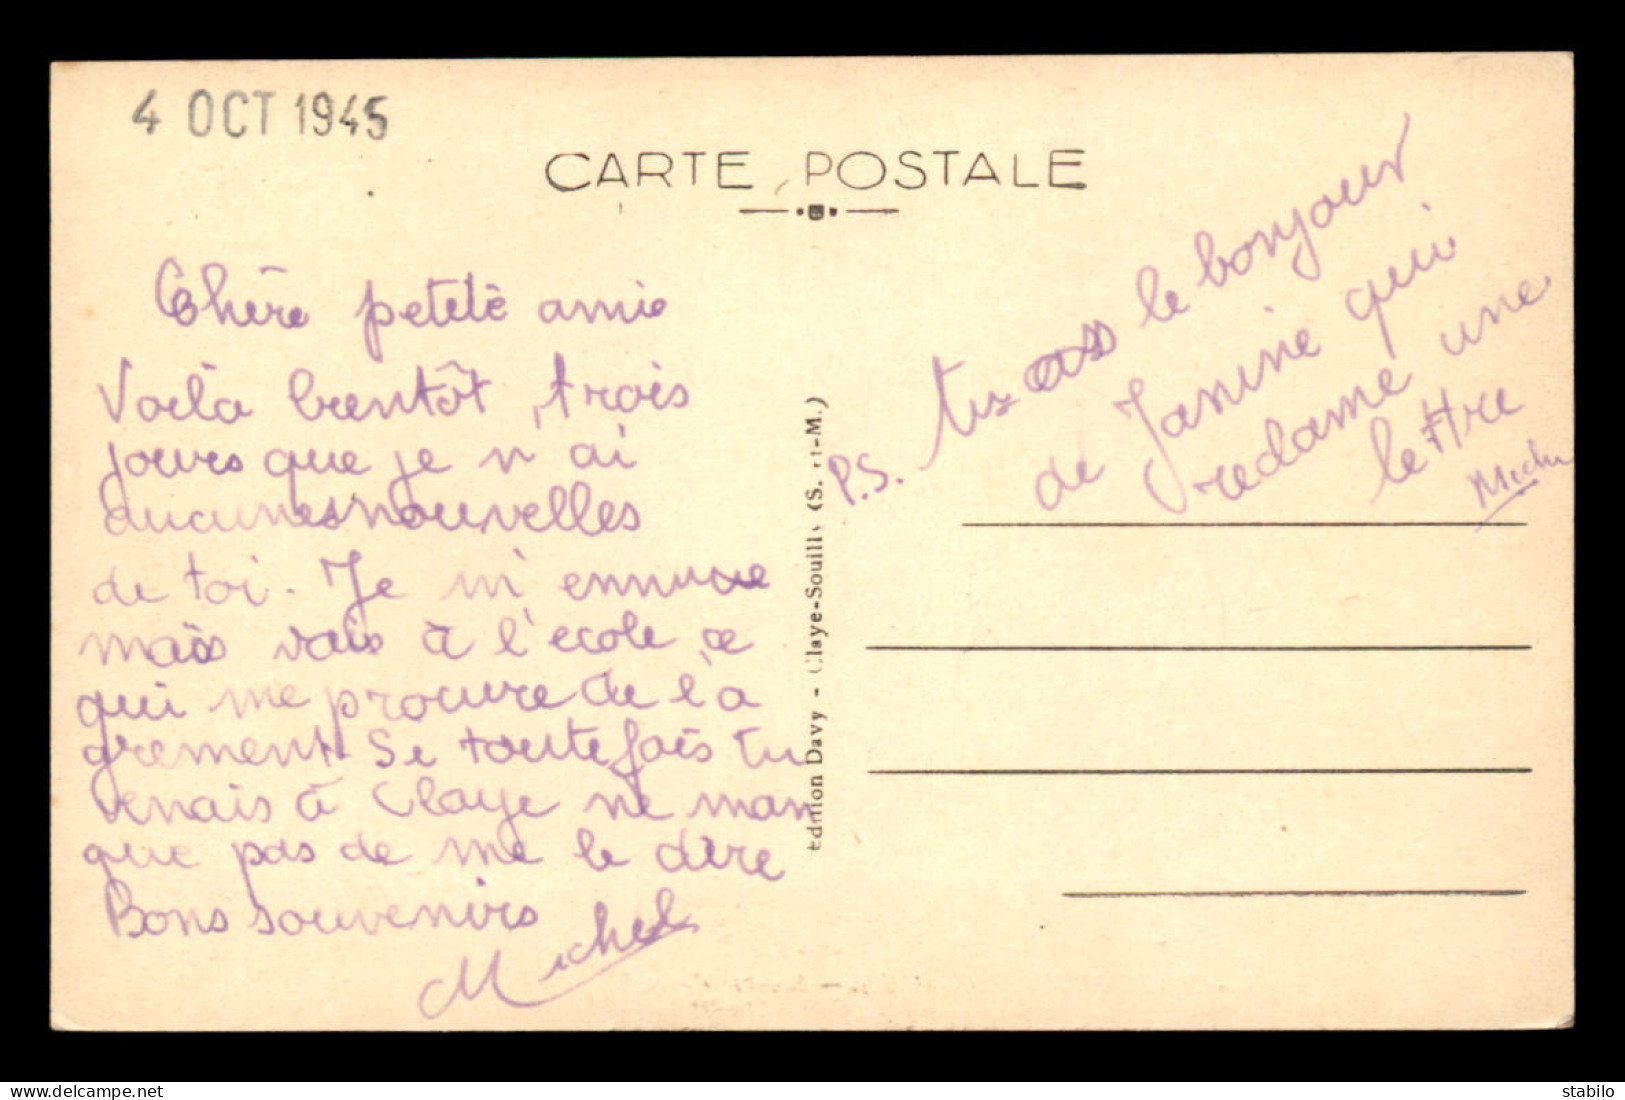 4 OCT 1945
CARTE POSTALE
Chère petite amie
Voilà bientôt, trois
jours que je n'ai
aucunes nouvelles
de toi. Je m'ennuie
mais vais à l'ecole ce
qui me procure de l'a
grement. Si toutefois tu
venais à Claye ne man
que pas de me le dire
Bons souvenirs
Michel
Edition Davy - Claye-Souilly (S.-et-M.)
P.S. tu as le bonjour
de Janine qui
reclame une
lettre
Michel
delcampe.net
stabilo